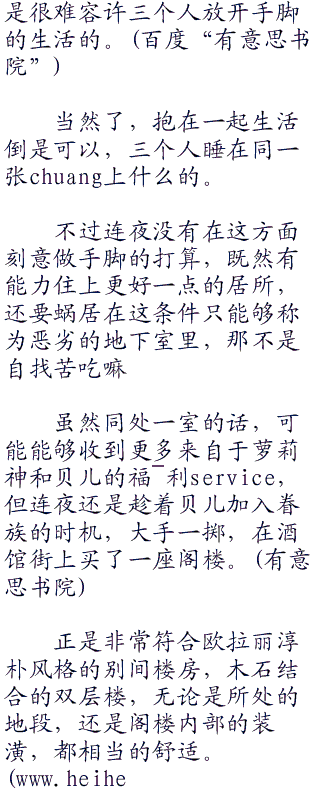 是很难容许三个人放开手脚
的生活的。(百度“有意思书
院”)
当然了，抱在一起生活
倒是可以，三个人睡在同一
张chuang上什么的。
不过连夜没有在这方面
刻意做手脚的打算，既然有
能力住上更好一点的居所，
还要蜗居在这条件只能够称
为恶劣的地下室里，那不是
自找苦吃嘛
虽然同处一室的话，可
能能够收到更多来自于萝莉
神和贝儿的福¯利service，
但连夜还是趁着贝儿加入眷
族的时机，大手一掷，在酒
馆街上买了一座阁楼。(有意
思书院)
正是非常符合欧拉丽淳
朴风格的别间楼房，木石结
合的双层楼，无论是所处的
地段，还是阁楼内部的装
潢，都相当的舒适。
(www.heihe